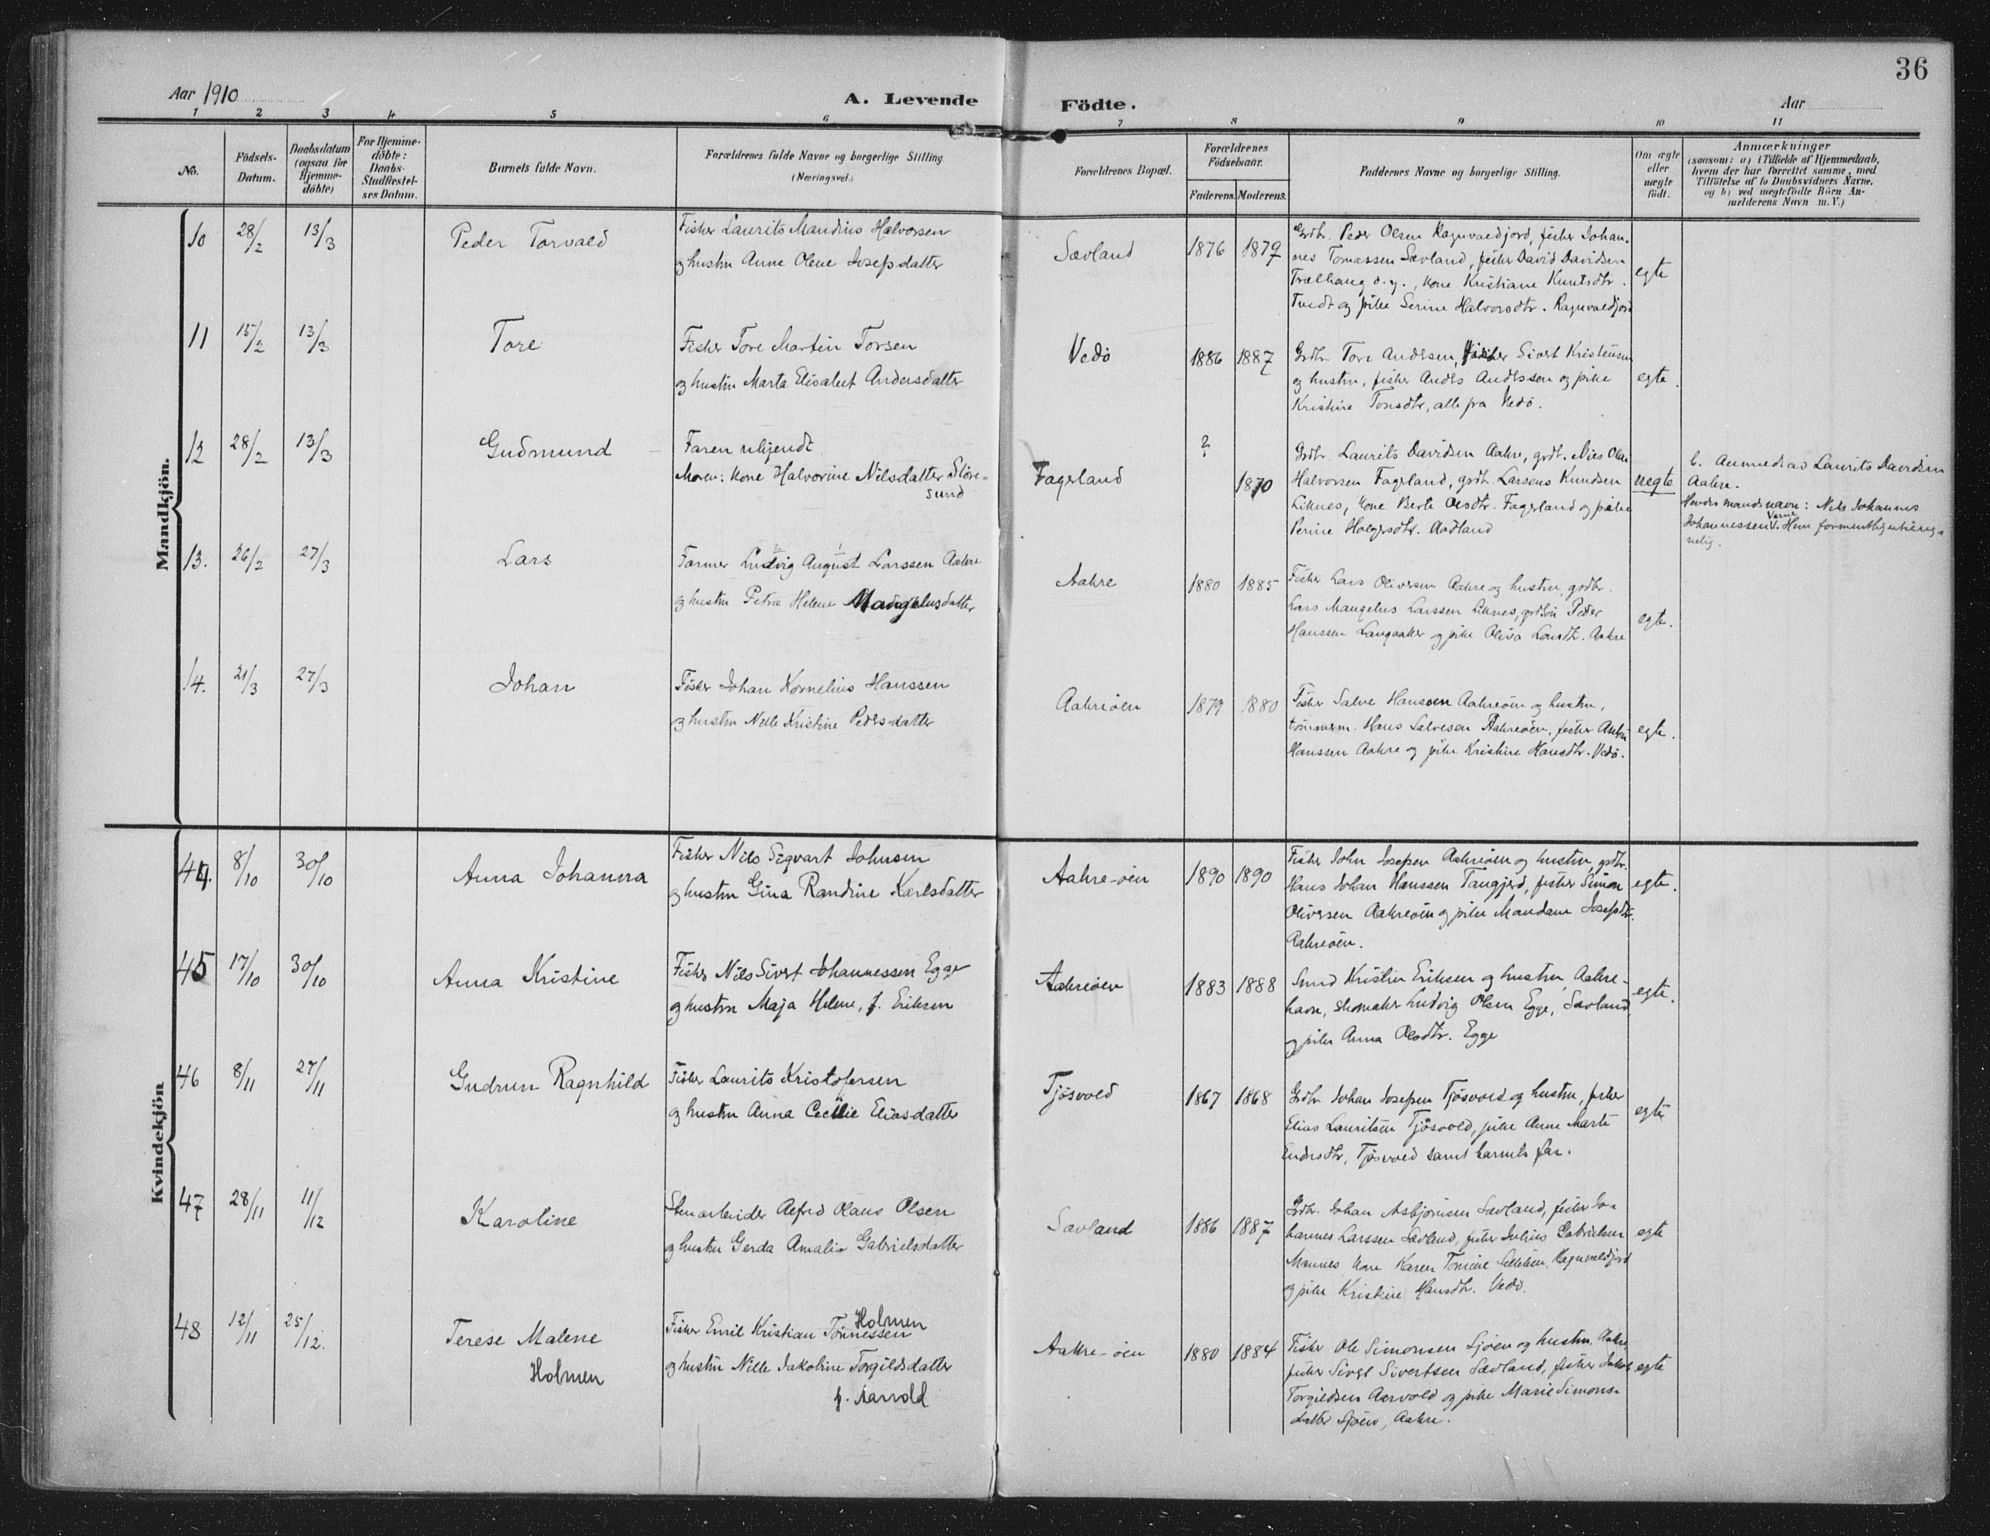 36
Aar 1910
A. Levende Födte.
Aar
1 2 3 4 5 6 7 8 9 10 11
No.
Födsels-Datum.
Daabsdatum (ogsaa for Hjemme-döbte)
For Hjemme-döbte: Daabs-Stadfæstel-ses Datum.
Barnets fulde Navn.
Forældrenes fulde Navne og borgerlige Stilling
(Næringsvei.)
Forældrenes Bopæl.
Forældrenes Födselsaar.
Faderens. Moderens.
Faddernes Navne og borgerlige Stilling.
Om ægte eller uægte födt.
Anmærkninger
(saasom: a) i Tilfælde af Hjemmedaab,
hvem der har forrettet samme, med
Tilföielse af to Daabsvidners Navne,
og b) ved uegtefödte Börn An-
melderens Navn m. V.)
Mandkjön.
10 28/2 13/3 Peder Torvald
Fisker Laurits Mandius Halvorsen
og hustru Anne Olene Josepsdatter
Sævland 1876 1879
Grdbr. Peder Olsen Ragnvaldjord, fisker Johan-
nes Tomassen Sævland, fisker David Davidsen
Trælhaug o. g., kone Kristiane Knutsdtr.
Tvedt og pike Serine Halvorsdtr. Ragnvaldjord
egte
11 15/2 13/3 Tore
Fisker Tore Martin Torsen
og hustru Marta Elisabet Andersdatter
Vedö 1886 1887
Grdbr. Tore Andersen, fisker Sivert Kristensen
og hustru, fisker Anders Anderssen og pike
Kristine Torsdtr, alle fra Vedö.
egte.
12 28/2 13/3 Gudmund
Faren ukjendt.
Moren: kone Halvorine Nilsdatter Store-
sund
Fagerland ? 1870
Grdbr. Laurits Davidsen Aakre, grdbr. Nils Olai
Halvorsen Fagerland, grdbr. Larsens Knudsen
Liknes, kone Berte Olsdtr. Fagerland og pike
Perine Holgersdtr. Aadland
uegte
b. Anmeldt av Laurits Davidsen
Aakre.
Hendes mands navn: Nils Johannes
Johannessen
13. 26/2 27/3 Lars
Farmer Ludvig August Larssen Aakre
og hustru Petra Helene Mangelusdatter
Aakre 1880 1885
Fisker Lars Oliversen Aakre og hustru, grdbr.
Lars Mangelus Larssen Liknes, Peder
Hanssen Langaaker og pike Oliva Larsdtr. Aakre
egte.
14. 21/3 27/3 Johan
Fisker Johan Kornelius Hanssen
og hustru Nelle Kristine Pedersdatter
Aakreöen 1879 1880
Fisker Salve Hanssen Aakreöen og hustru,
tömmerm. Hans Salvesen Aakreöen, fisker
Hanssen Aakre og pike Kristine Hansdtr. Vedö.
egte.
Kvindekjön
44. 8/10 30/10 Anna Johanna
Fisker Nils Sigvart Johnsen
og hustru Gina Randine Karlsdatter
Aakre-öen 1890 1890
Fisker John Josepsen Aakreöen og hustru, grdbr.
Hans Johan Hanssen Tangjerd, fisker Simon
Oliversen Aakreöen og pike Mandane Josepsdtr.
Aakreöen.
egte.
45 17/10 30/10 Anna Kristine
Fisker Nils Sivert Johannessen Egge
og hustru Maja Helene, f. Eriksen
Aakreöen 1883 1888
Smed Kristen Eriksen og hustru, Aakre-
havn, skomaker Ludvig Olsen Egge, Sævland
og pike Anna Olsdtr. Egge
egte.
46 8/11 27/11 Gudrun Ragnhild
Fisker Laurits Kristofersen
og hustru Anna Cecilie Eliasdatter
Tjösvold 1867 1868
Grdbr. Johan Josepsen Tjösvold og hustru, fisker
Elias Lauritsen Tjösvold, pike Anne Marte
Endresdtr, Tjösvold samt barnets far.
egte
47 28/11 11/12 Karoline
Stenarbeider Alfred Olaus Olsen
og hustru Gerda Amalia Gabrielsdatter
Sævland 1886 1887
Grdbr. Johan Asbjörnsen Sævland, fisker Jo-
hannes Larssen Sævland, fisker Julius Gabrielsen
Mannes, kone Karen Tomine Ragnvaldjord
og pike Kristine Hansdtr. Vedö.
egte
48 12/11 25/12. Terese Malene
Holmen
Fisker Emil Kristian Tönnessen Holmen
og hustru Nille Jakobine Torgildsdatter
f. Aarvold
Aakre-öen 1880 1884
Fisker Ole Simonsen Sjöen og hustru, Aakre,
fisker Sivert Sivertsen Sævland, fisker Jakob
Torgildsen Aarvold og pike Marie Simons-
datter Sjöen, Aakre.
egte